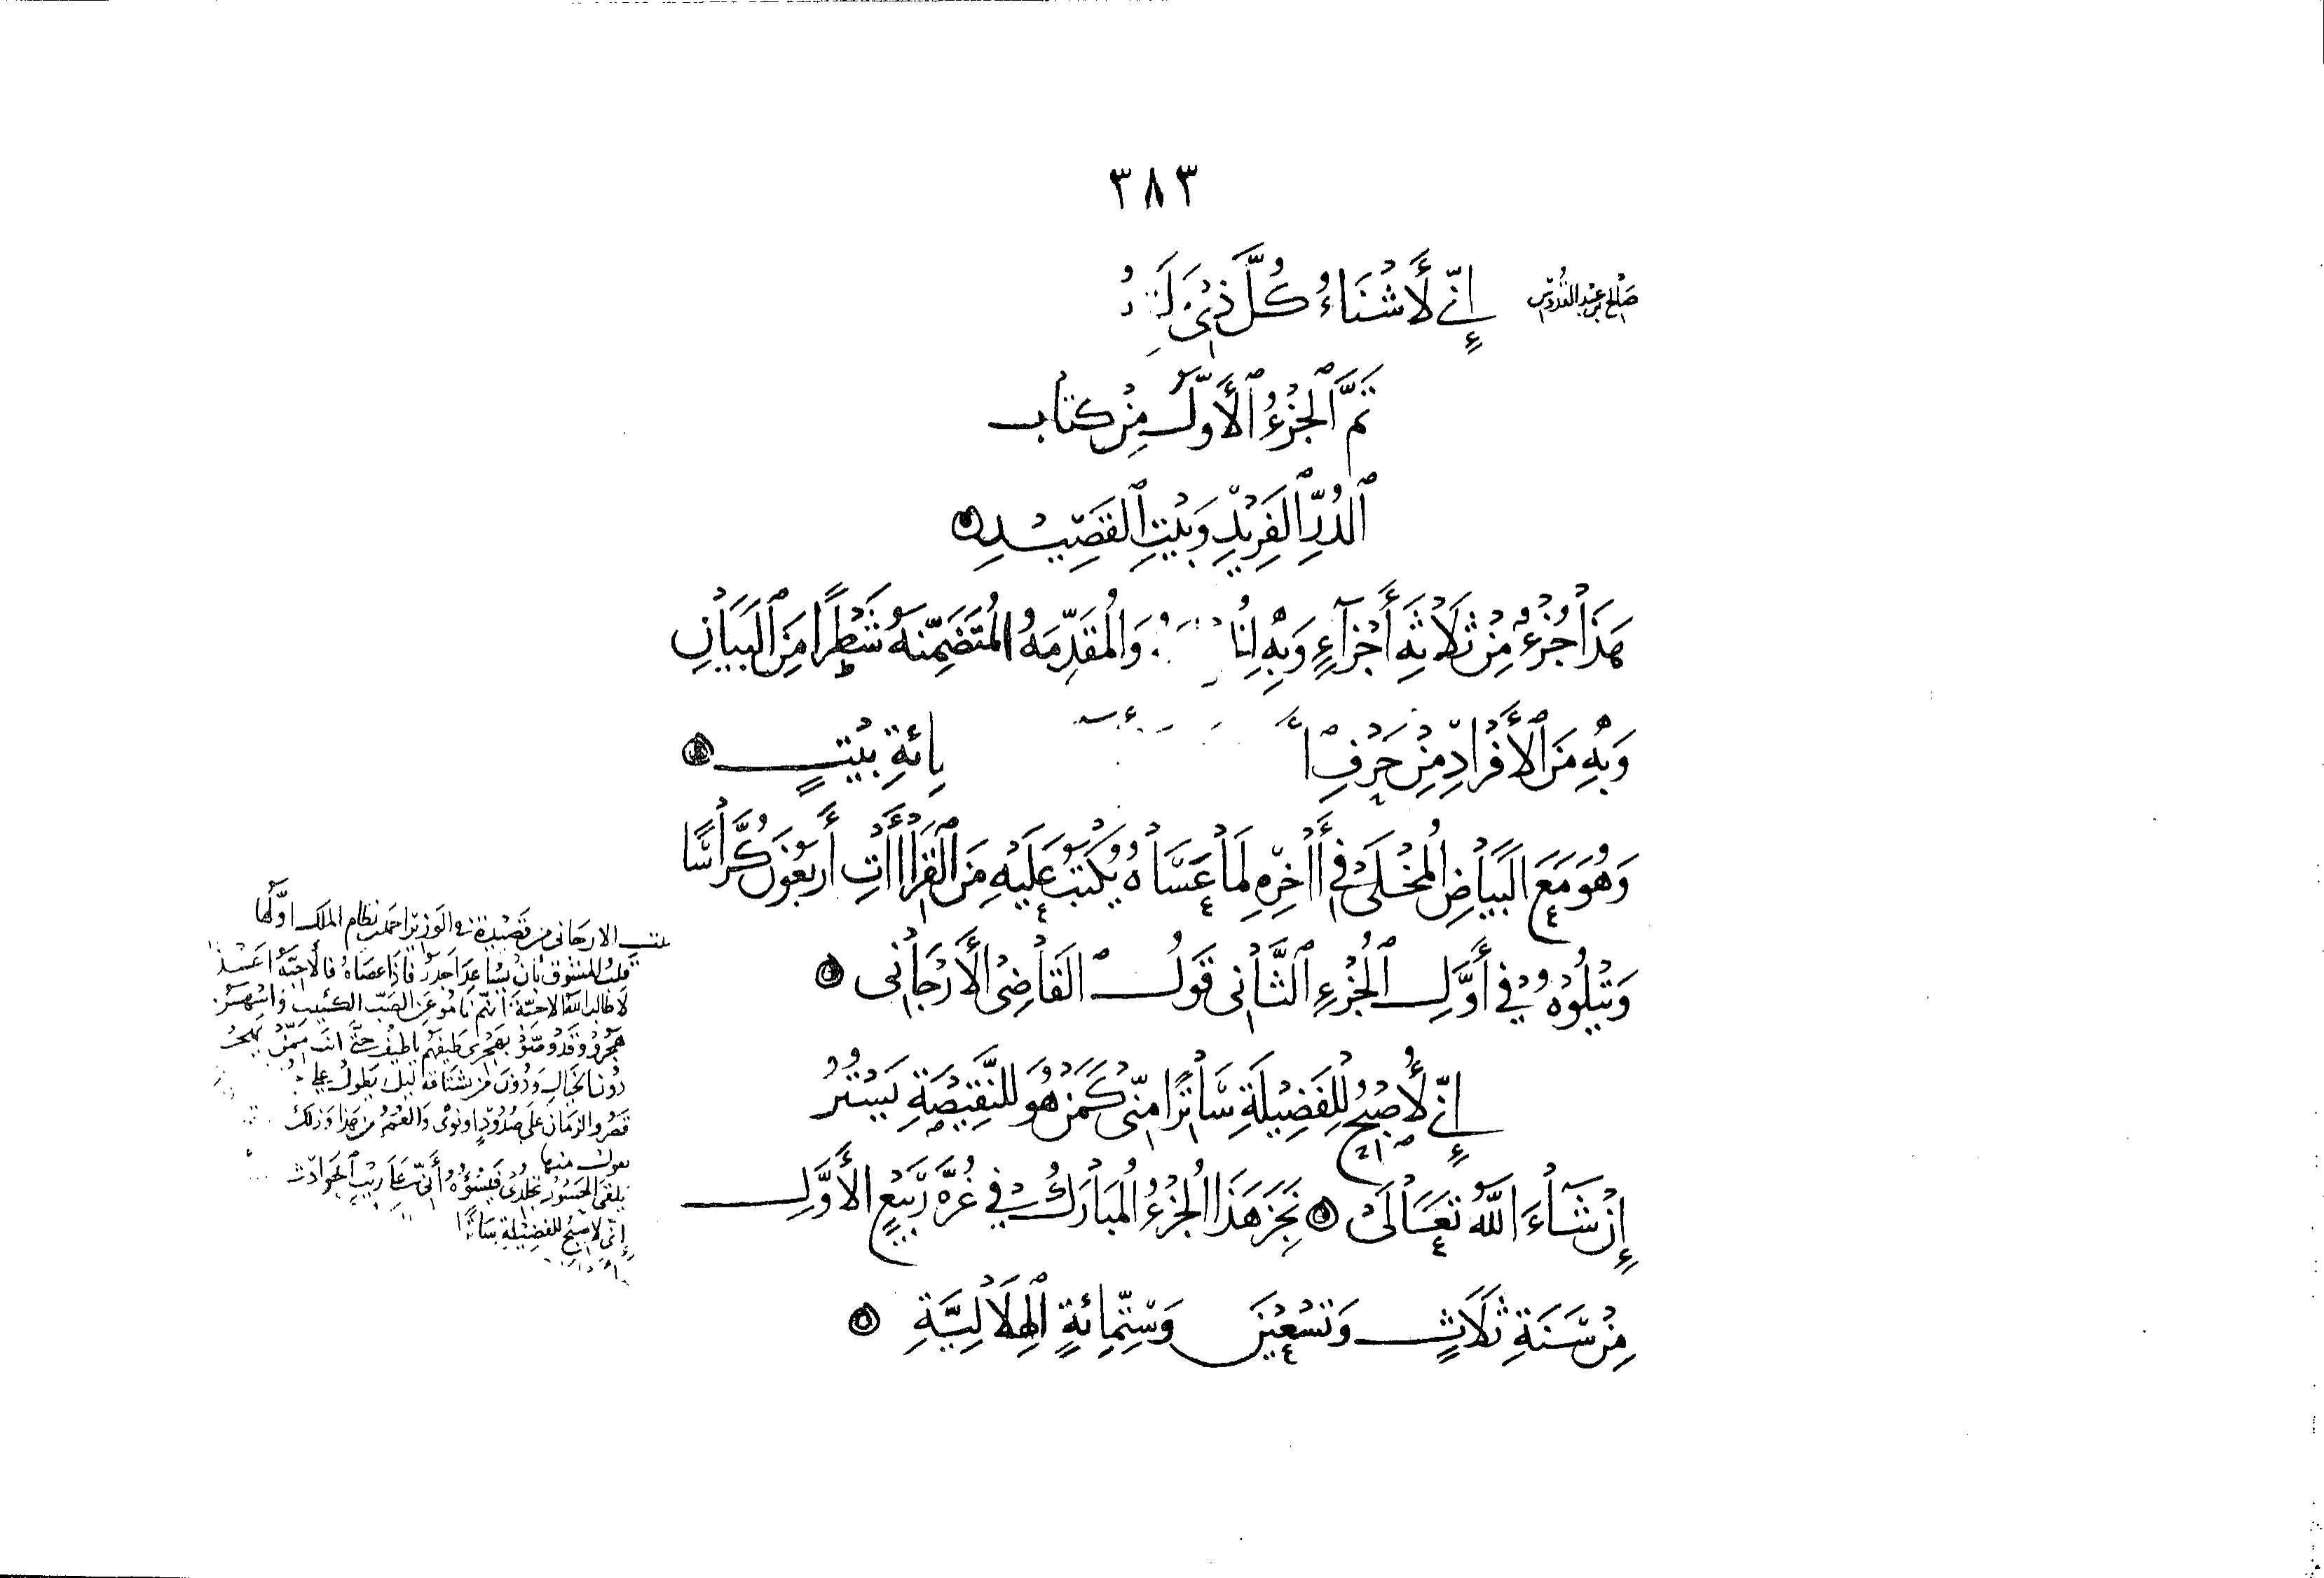 ٣٨٣
صالح بن عبد القدوس
إِنِّي لَأَشْنَاءُ كُلَّ ذِي
تَمَّ الجُزْءُ الأَوَّلُ مِنْ كِتَابِ
الدُّرِّ الفَرِيْدِ وَبَيْتِ القَصِيْدِ
هَذَا جُزْءٌ مِنْ ثَلَاثَةِ أَجْزَآءٍ وَبِهِ وَالمُقَدِّمَةُ المُتَضَمِّنَةُ شَطْرًا مِنَ البَيَانِ
وَبِهِ مِنَ الأَفْرَادِ مِنْ حَرْفِ بَيْتٍ
وَهُوَ مَعَ البَيَاضِ المُخْلَى فِي أَاخِرِهِ لِمَا عَسَاهُ يُكْتَبُ عَلَيْهِ مِنَ القَرَاأَاتِ أَرْبَعُونَ كُرَّاسًا
وَيَتْلُوْهُ فِي أَوَّلِ الجُزْءِ الثَّانِي قَوْلُ القَاضِي الأَرَّجَانِي
إِنِّي لَأُصْبِحُ لِلْفَضِيْلَةِ سَاتِرًا مِنِّي كَمَنْ هُوَ لِلنَّقِيْصَةِ يَسْتُرُ
إِنْ شَآءَ اللَّهُ تَعَالَى نَجَزَ هَذَا الجُزْءُ المُبَارَكُ فِي غُرَّةِ رَبِيْعٍ الأَوَّلِ
مِنْ سَنَةِ ثَلَاثٍ وَتِسْعِيْنَ وَسِتِّمِائَةٍ الهِلَالِيَّةِ
الارجاني من قصيدة في الوزير احمد بن نظام الملك اولها
قلب المشوق بأن يساعد اجدر فاذا عصاه فالاحبة اعذر
لا طالب الله الاحبة انهم ناموا عن الصب الكئيب واسهروا
هجروا وقد وصوا بهجري طيفهم يا طيف حتى انت ممن يهجر
دون الخيال ودون من يشتاقه ليل يطول على
قصر الزمان على صدود او نوى والعمر من هذا وذلك
يقول منها
يلقى الحسود تجلدي فيسوؤه أني على ريب الحوادث
إني لاصبح للفضيلة ساترا